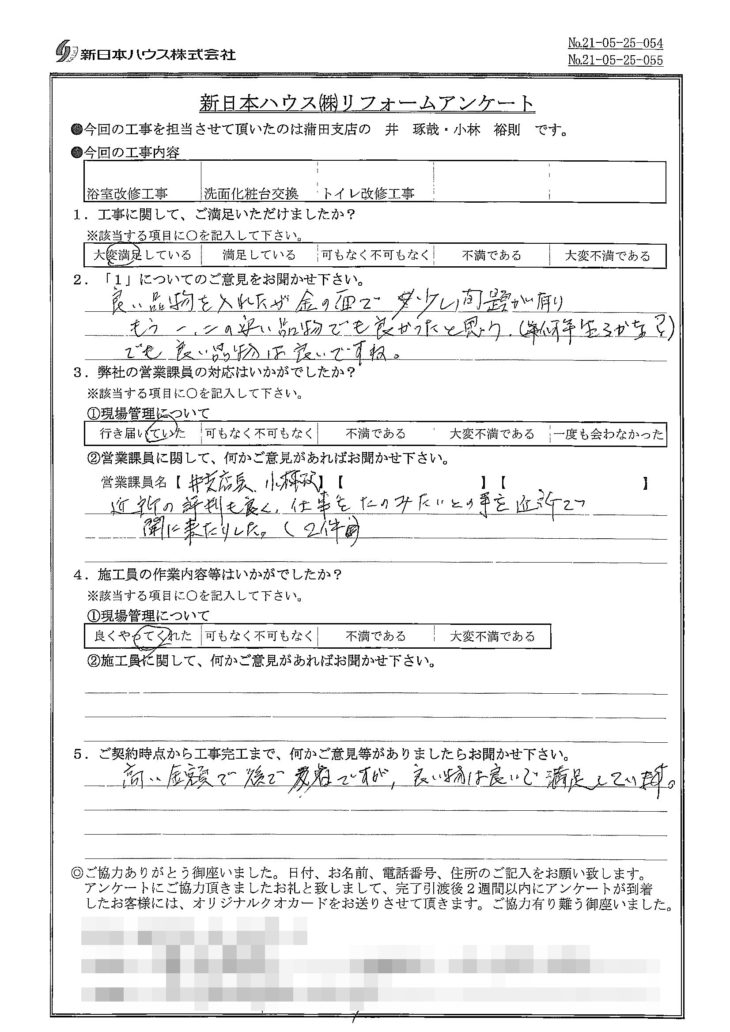 新日本ハウス株式会社
No.21-05-25-054
No.21-05-25-055
新日本ハウス㈱リフォームアンケート
●今回の工事を担当させて頂いたのは蒲田支店の 井 琢哉・小林 裕則 です。
●今回の工事内容
浴室改修工事 洗面化粧台交換 トイレ改修工事
1．工事に関して、ご満足いただけましたか？
※該当する項目に○を記入して下さい。
大変満足している 満足している 可もなく不可もなく 不満である 大変不満である
2．「1」についてのご意見をお聞かせ下さい。
良い品物を入れたが金の面で多少い問題が有り
もう一、二の安い品物でも良かったと思う、(何年生るかな?)
でも良い品物は良いですね。
3．弊社の営業課員の対応はいかがでしたか？
※該当する項目に○を記入して下さい。
①現場管理について
行き届いていた 可もなく不可もなく 不満である 大変不満である 一度も会わなかった
②営業課員に関して、何かご意見があればお聞かせ下さい。
営業課員名【井支店長 小林】【 】【 】
近所の評判も良く、仕事をたのみたいとの事を近所で
聞に来たりした。(2件
4．施工員の作業内容等はいかがでしたか？
※該当する項目に○を記入して下さい。
①現場管理について
良くやってくれた 可もなく不可もなく 不満である 大変不満である
②施工員に関して、何かご意見があればお聞かせ下さい。
5．ご契約時点から工事完工まで、何かご意見等がありましたらお聞かせ下さい。
高い金額で後で ですが、良い物は良いで満足しています。
◎ご協力ありがとう御座いました。日付、お名前、電話番号、住所のご記入をお願い致します。
アンケートにご協力頂きましたお礼と致しまして、完了引渡後２週間以内にアンケートが到着
したお客様には、オリジナルクオカードをお送りさせて頂きます。ご協力有り難う御座いました。